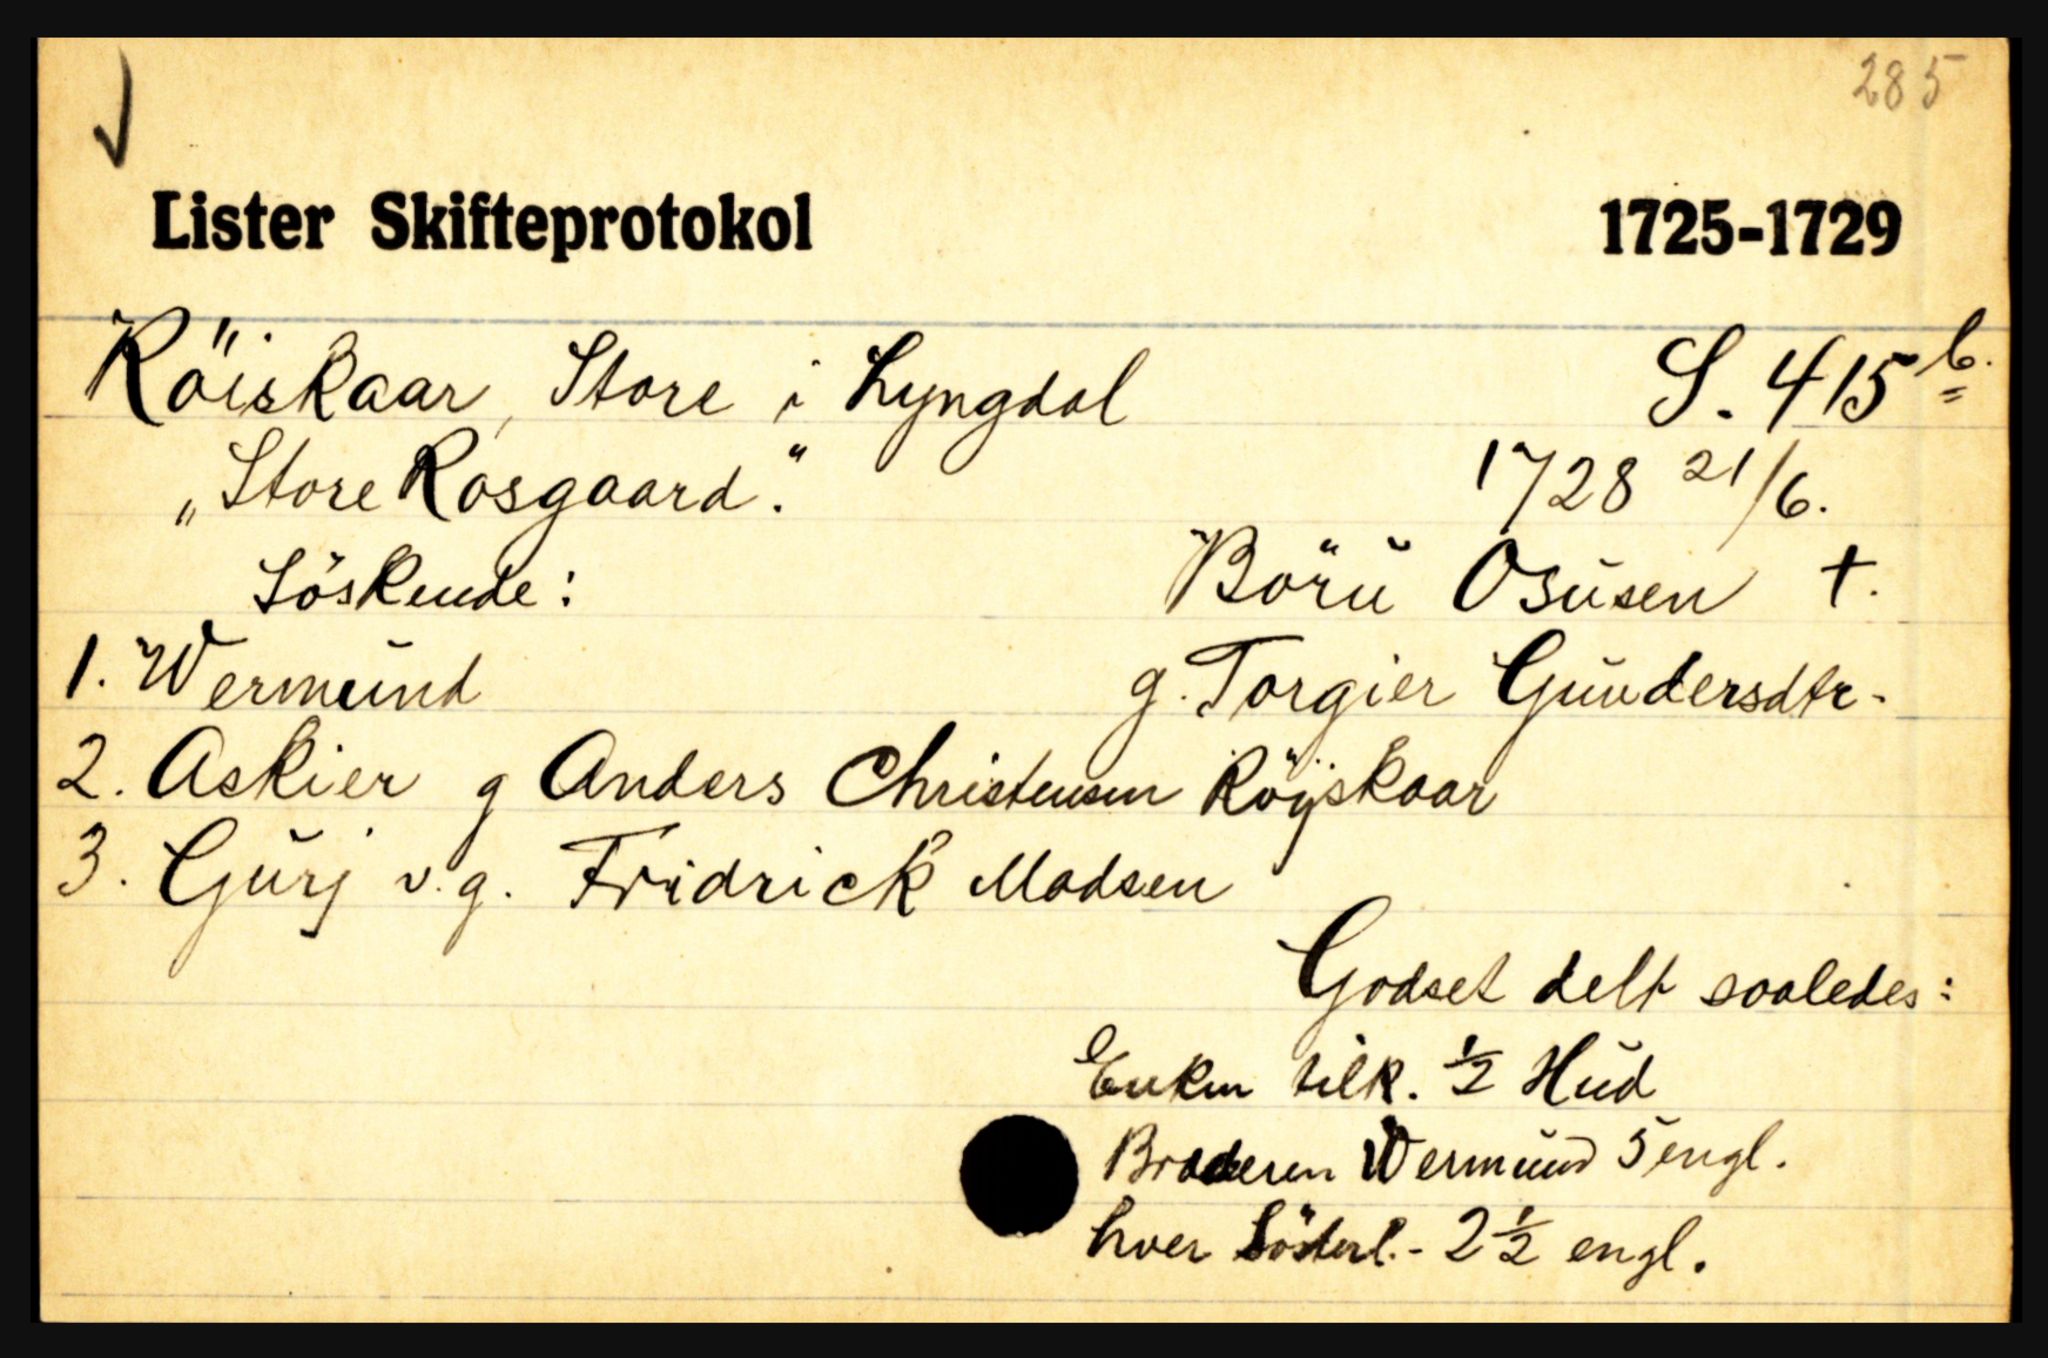 285
Lister Skifteprotokol 1725-1729
Röiskaar, Store i Lyngdal S. 415 b.
„Store Rosgaard." 1728 21/6.
Söskende: Börü Osŭsen +.
1. Wermŭnd g. Torgier Gŭndersdtr.
2. Askier g Anders Christensen Röyskaar
3. Gŭrj v. g. Fridrick Madsen
Godset delt saaledes:
Enken tilk. ½ Hŭd
Broderen Wermŭnd 5 engl.
hver 2½ engl.